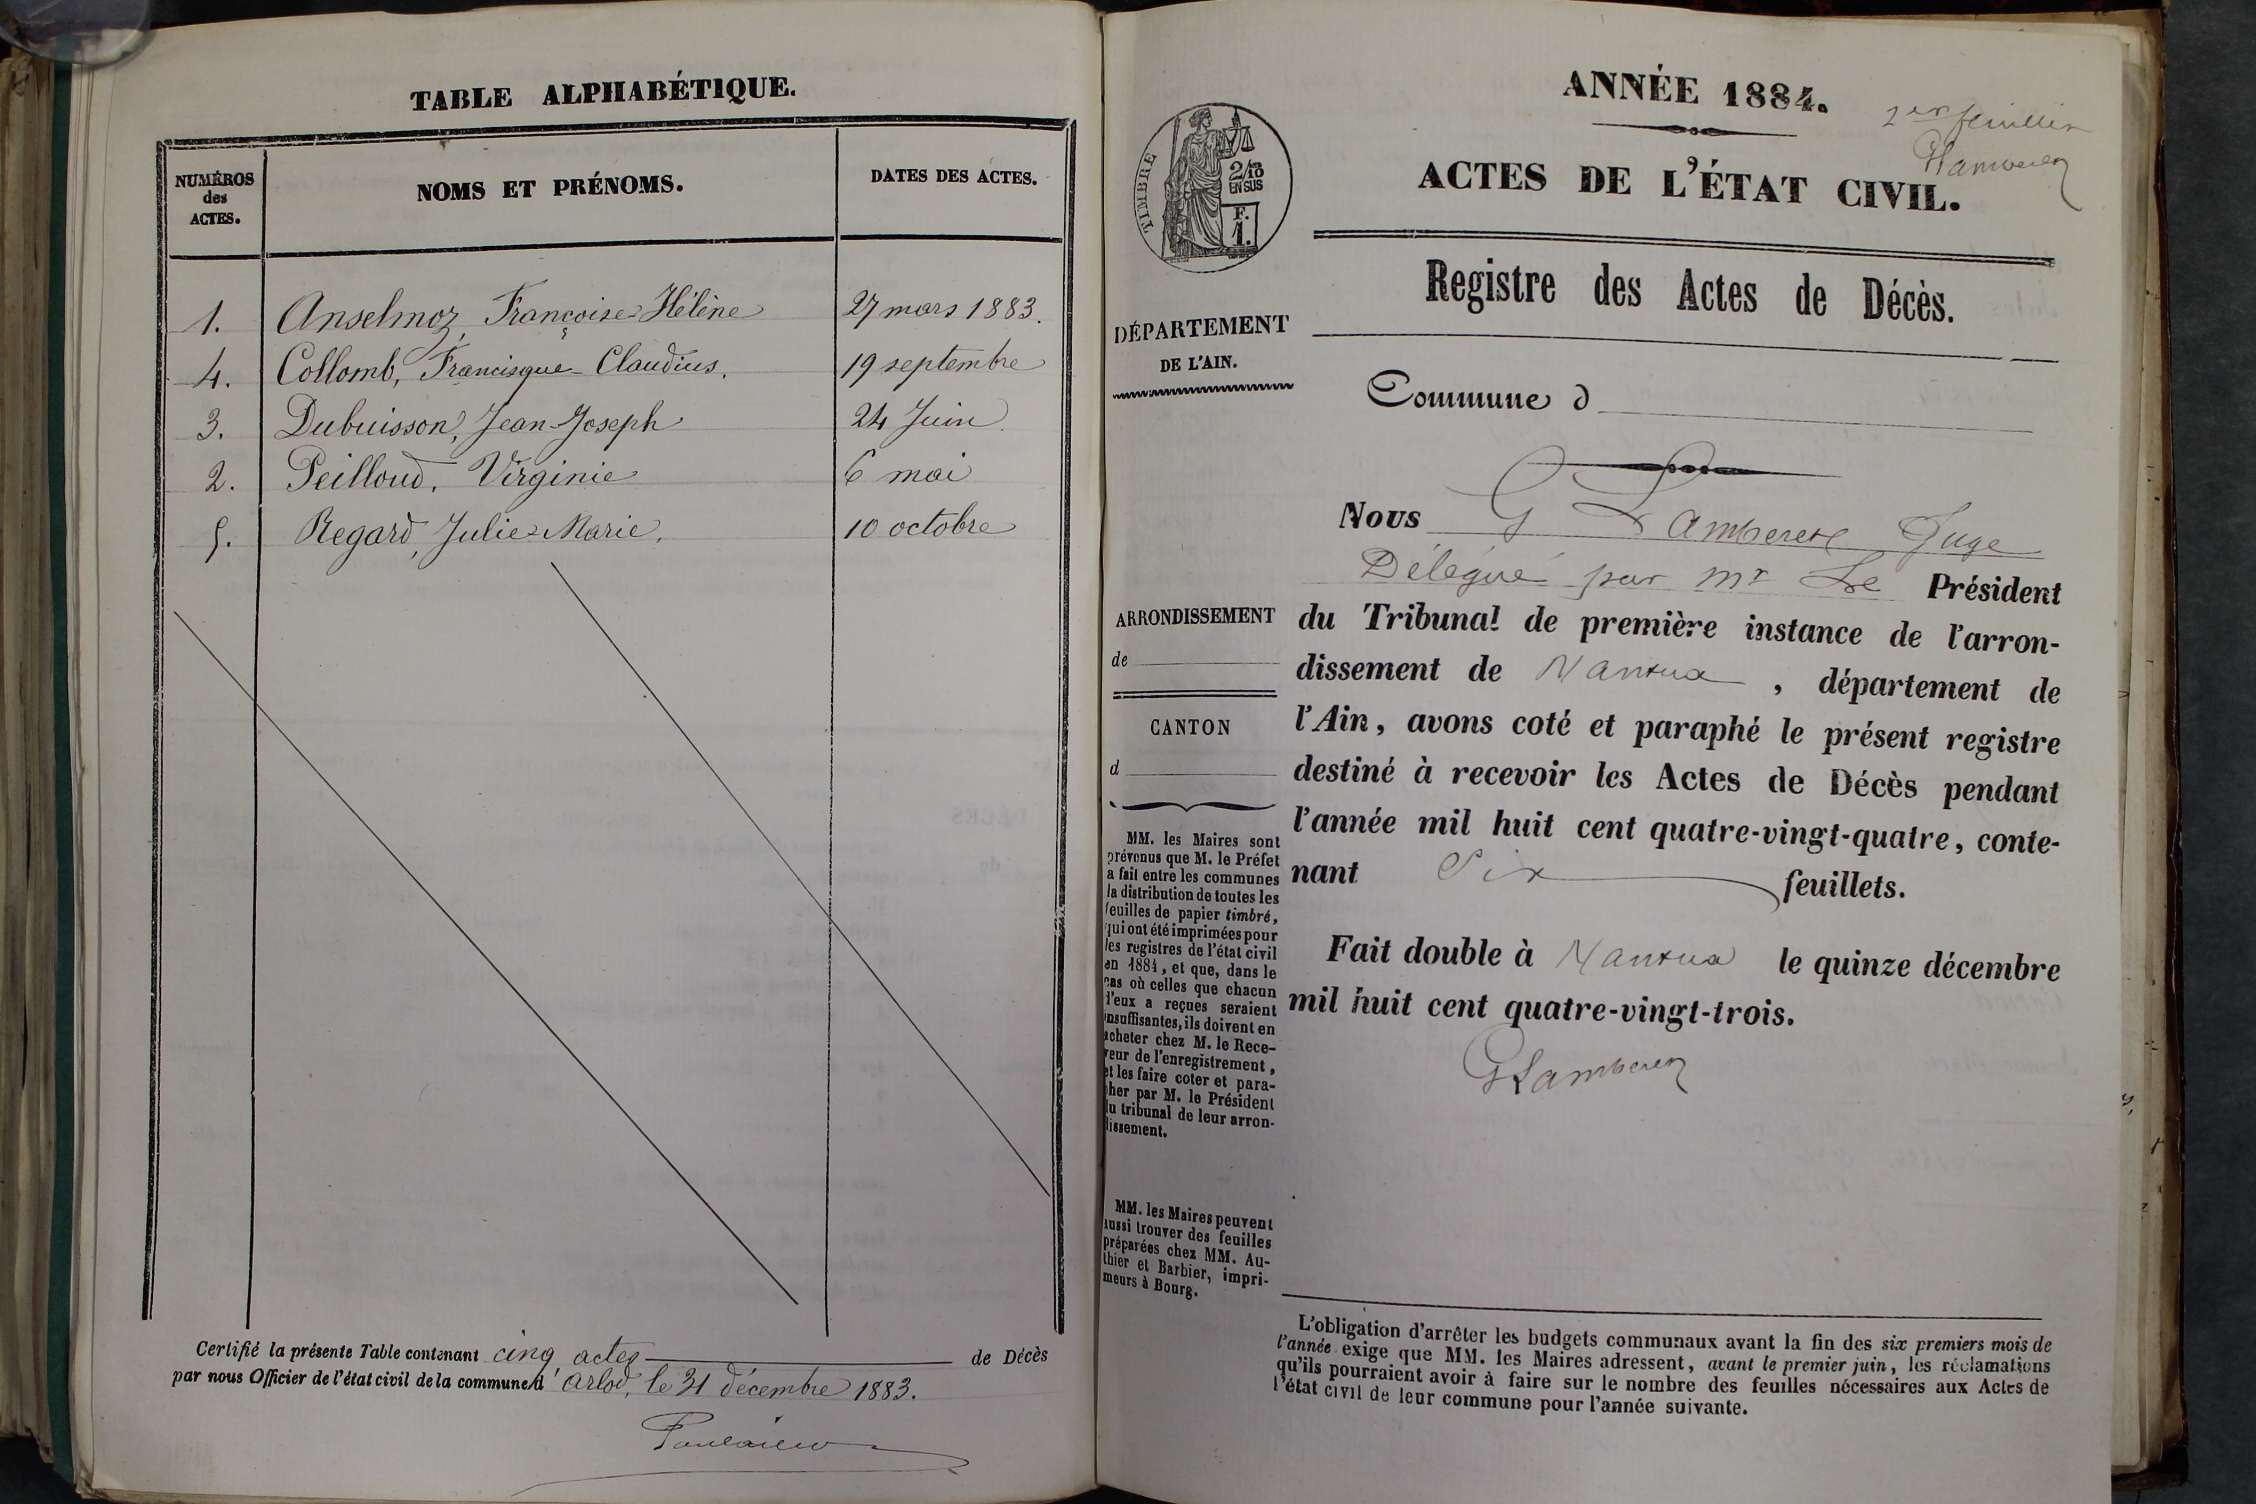 TABLE ALPHABÉTIQUE.
NUMÉROS
des
ACTES.
NOMS ET PRÉNOMS.
DATES DES ACTES.
1. Anselmoz, Françoise-Hélène 27 mars 1883.
4. Collomb, Francisque-Claudius. 19 septembre
3. Dubuisson, Jean-Joseph 24 Juin
2. Peilloud, Virginie 6 mai
5. Regard, Julie-Marie. 10 octobre
Certifié la présente Table contenant cinq actes de Décès
par nous Officier de l'état civil de la commune d'Arlod, le 31 décembre 1883.
ANNÉE 1884.
1er feuillet
ACTES DE L'ÉTAT CIVIL.
TIMBRE
2/10
EN SUS
F.
1.
Registre des Actes de Décès.
DÉPARTEMENT
DE L'AIN.
Commune d
Nous G Lamberet Juge
Délégué par Mr Le Président
du Tribunal de première instance de l'arron-
dissement de Nantua, département de
l'Ain, avons coté et paraphé le présent registre
destiné à recevoir les Actes de Décès pendant
l'année mil huit cent quatre-vingt-quatre, conte-
nant Six feuillets.
Fait double à Nantua le quinze décembre
mil huit cent quatre-vingt-trois.
GLamberet
ARRONDISSEMENT
de
CANTON
d
MM. les Maires sont
prévenus que M. le Préfet
a fait entre les communes
la distribution de toutes les
feuilles de papier timbré,
qui ont été imprimées pour
les registres de l'état civil
en 1884, et que, dans le
cas où celles que chacun
d'eux a reçues seraient
insuffisantes, ils doivent en
acheter chez M. le Rece-
veur de l'enregistrement,
et les faire coter et para-
pher par M. le Président
du tribunal de leur arron-
dissement.
MM. les Maires peuvent
aussi trouver des feuilles
préparées chez MM. Au-
thier et Barbier, impri-
meurs à Bourg.
L'obligation d'arrêter les budgets communaux avant la fin des six premiers mois de
l'année exige que MM. les Maires adressent, avant le premier juin, les réclamations
qu'ils pourraient avoir à faire sur le nombre des feuilles nécessaires aux Actes de
l'état civil de leur commune pour l'année suivante.